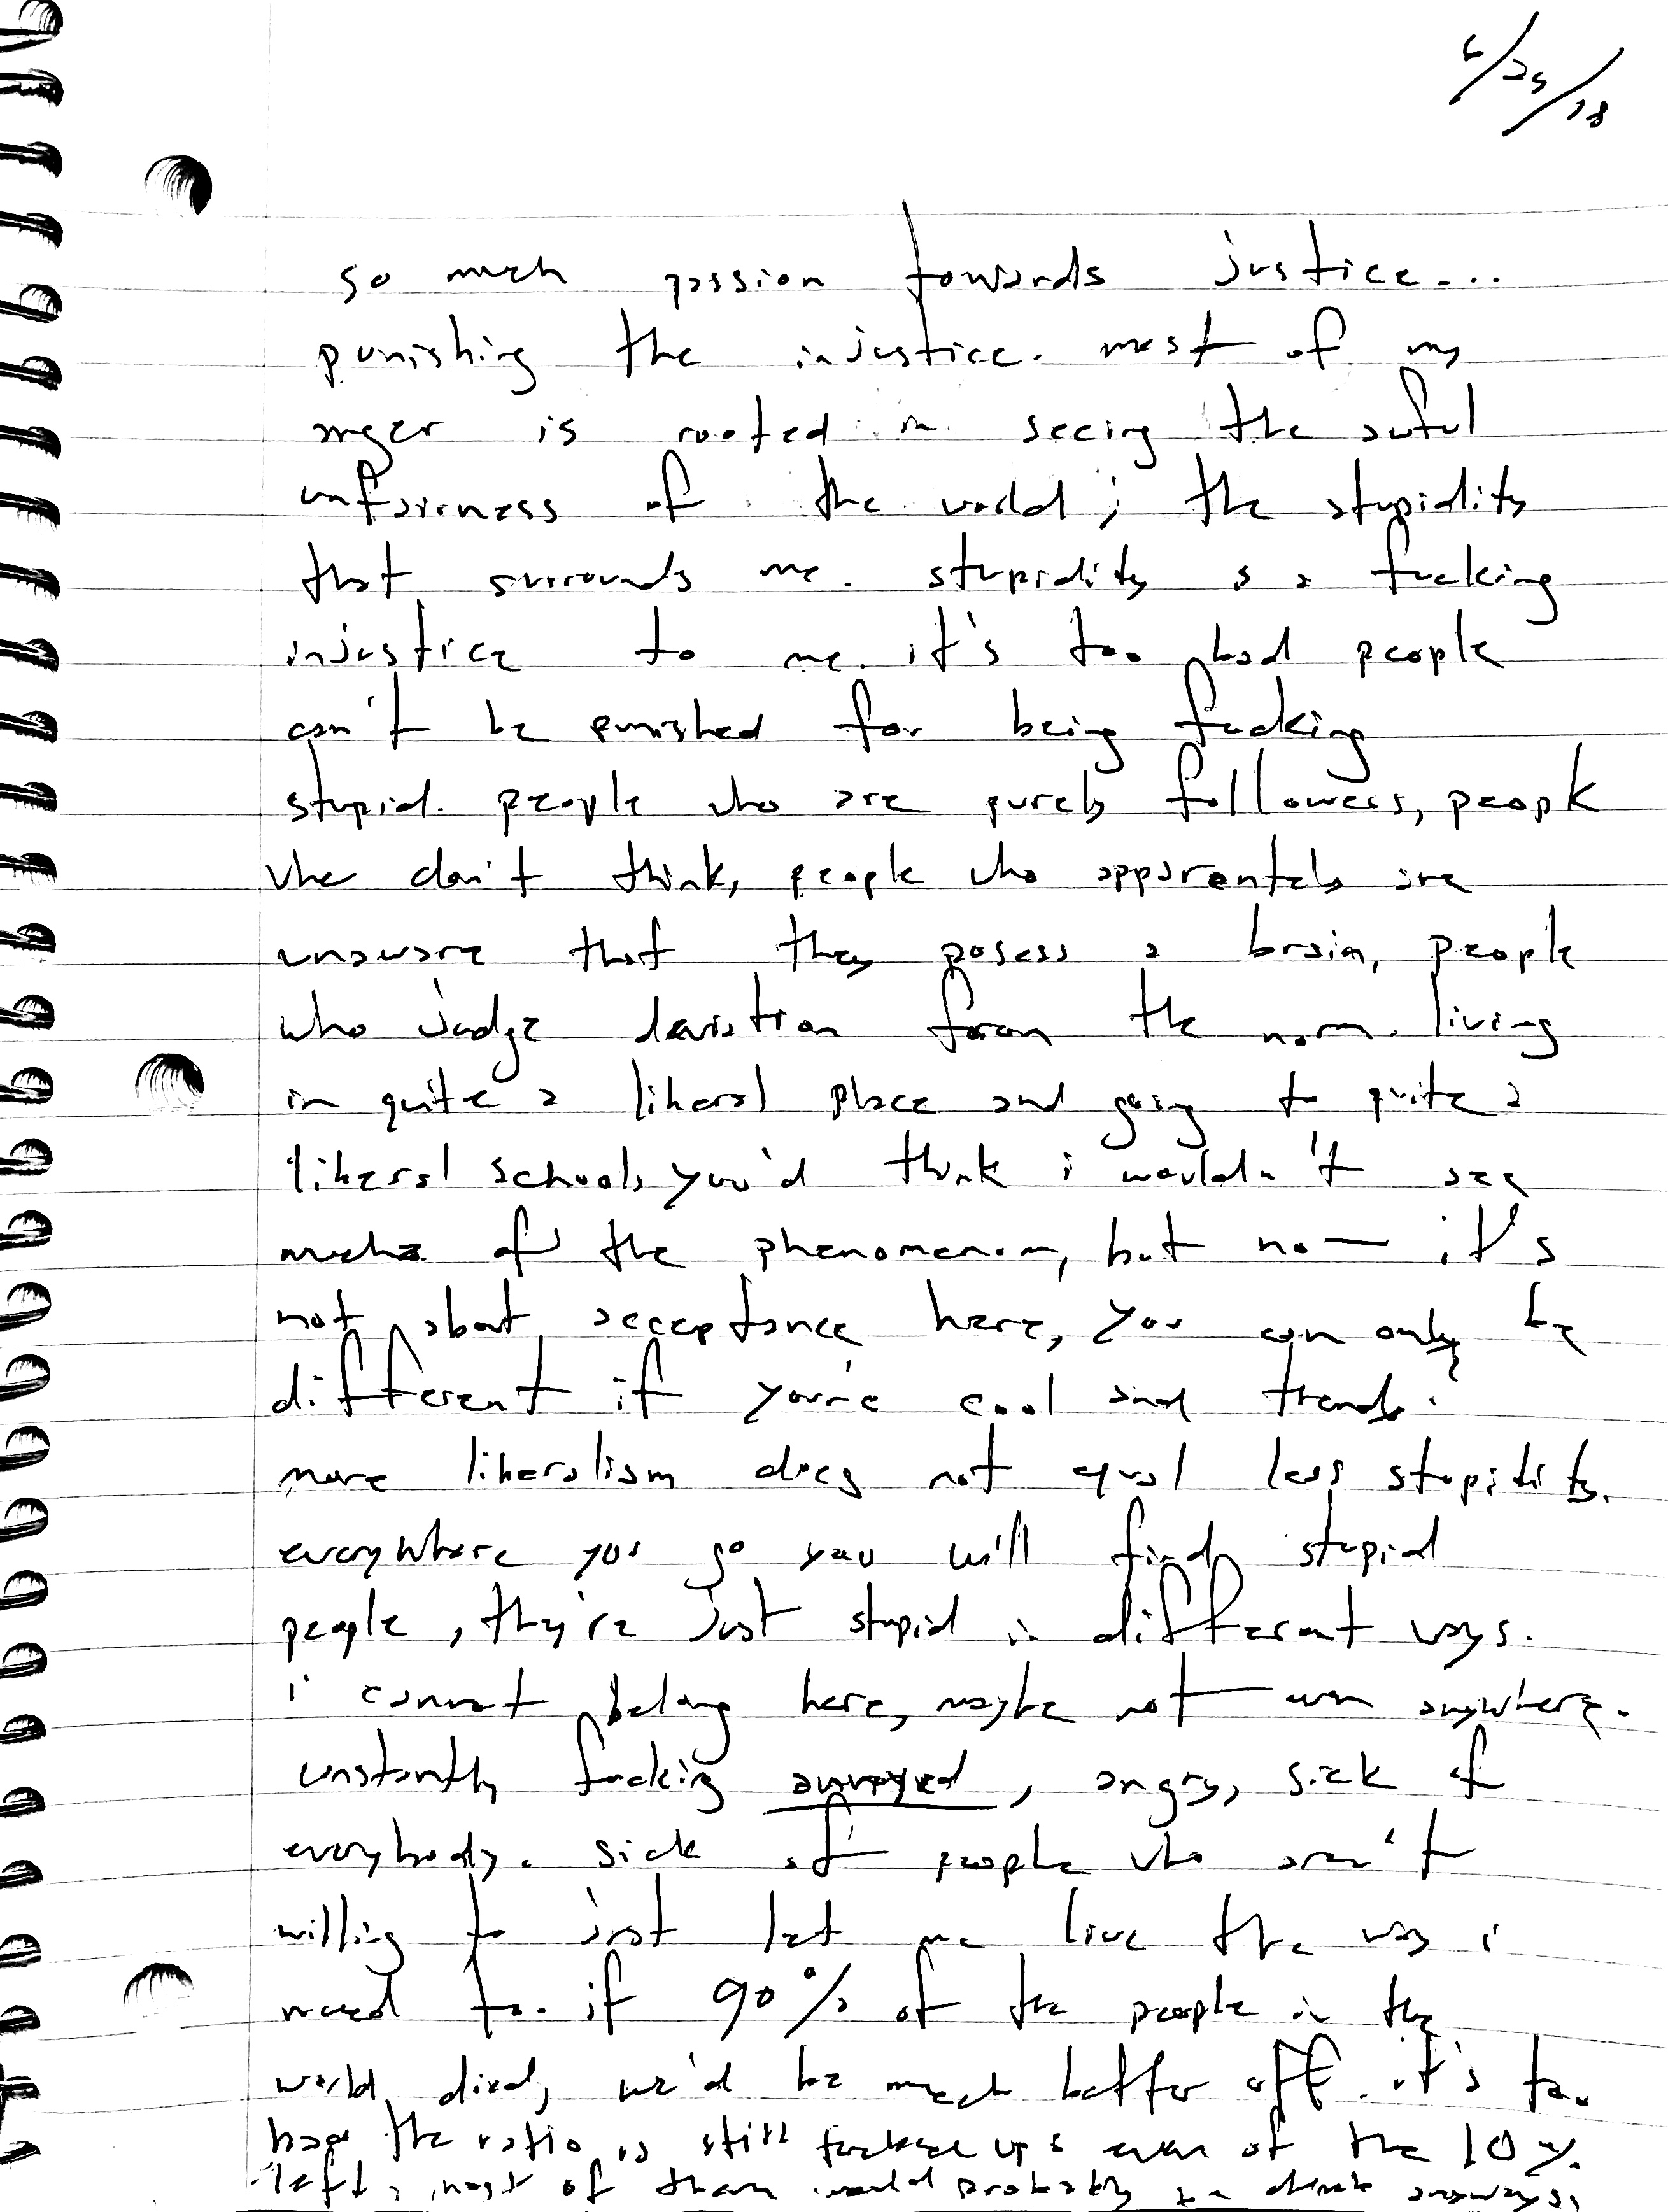 6/25/18
so much passion towards justice...
punishing the injustice. most of my
anger is rooted in seeing the awful
unfairness of the world; the stupidity
that surrounds me. stupidity is a fucking
injustice to me. it's too bad people
can't be punished for being fucking
stupid. people who are purely followers, people
who don't think, people who apparently are
unaware that they posess a brain, people
who judge deviation from the norm. living
in quite a liberal place and going to quite a
liberal school, you'd think i wouldn't see
much of the phenomenon, but no — it's
not about acceptance here, you can only be
different if you're cool and trendy.
more liberalism does not equal less stupidity.
everywhere you go you will find stupid
people, they're just stupid in different ways.
i cannot belong here, maybe not even anywhere.
constantly fucking annoyed, angry, sick of
everybody. sick of people who aren't
willing to just let me live the way i
need to. if 90% of the people in the
world died, we'd be much better off. it's too
bad the ratio is still fucked up & even of the 10%
left, most of them would probably be anyways,